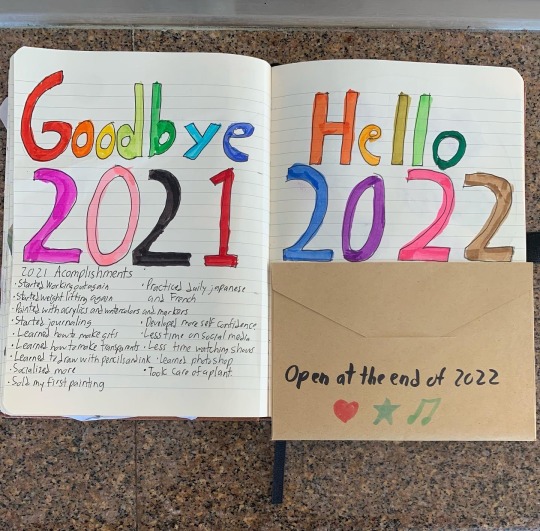 Goodbye
2021
2021 Acomplishments
• Started working out again
• Started weight lifting again
• Painted with acrylics and watercolors and markers
• Started journaling
• Learned how to make gifs
• Learned how to make transparents
• Learned to draw with pencils and ink
• Socialized more
• Sold my first painting
• Practiced daily japanese
and French
• Developed more self confidence
• Less time on social media
• Less time watching shows
• Learned photoshop
• Took care of a plant
Hello
2022
Open at the end of 2022